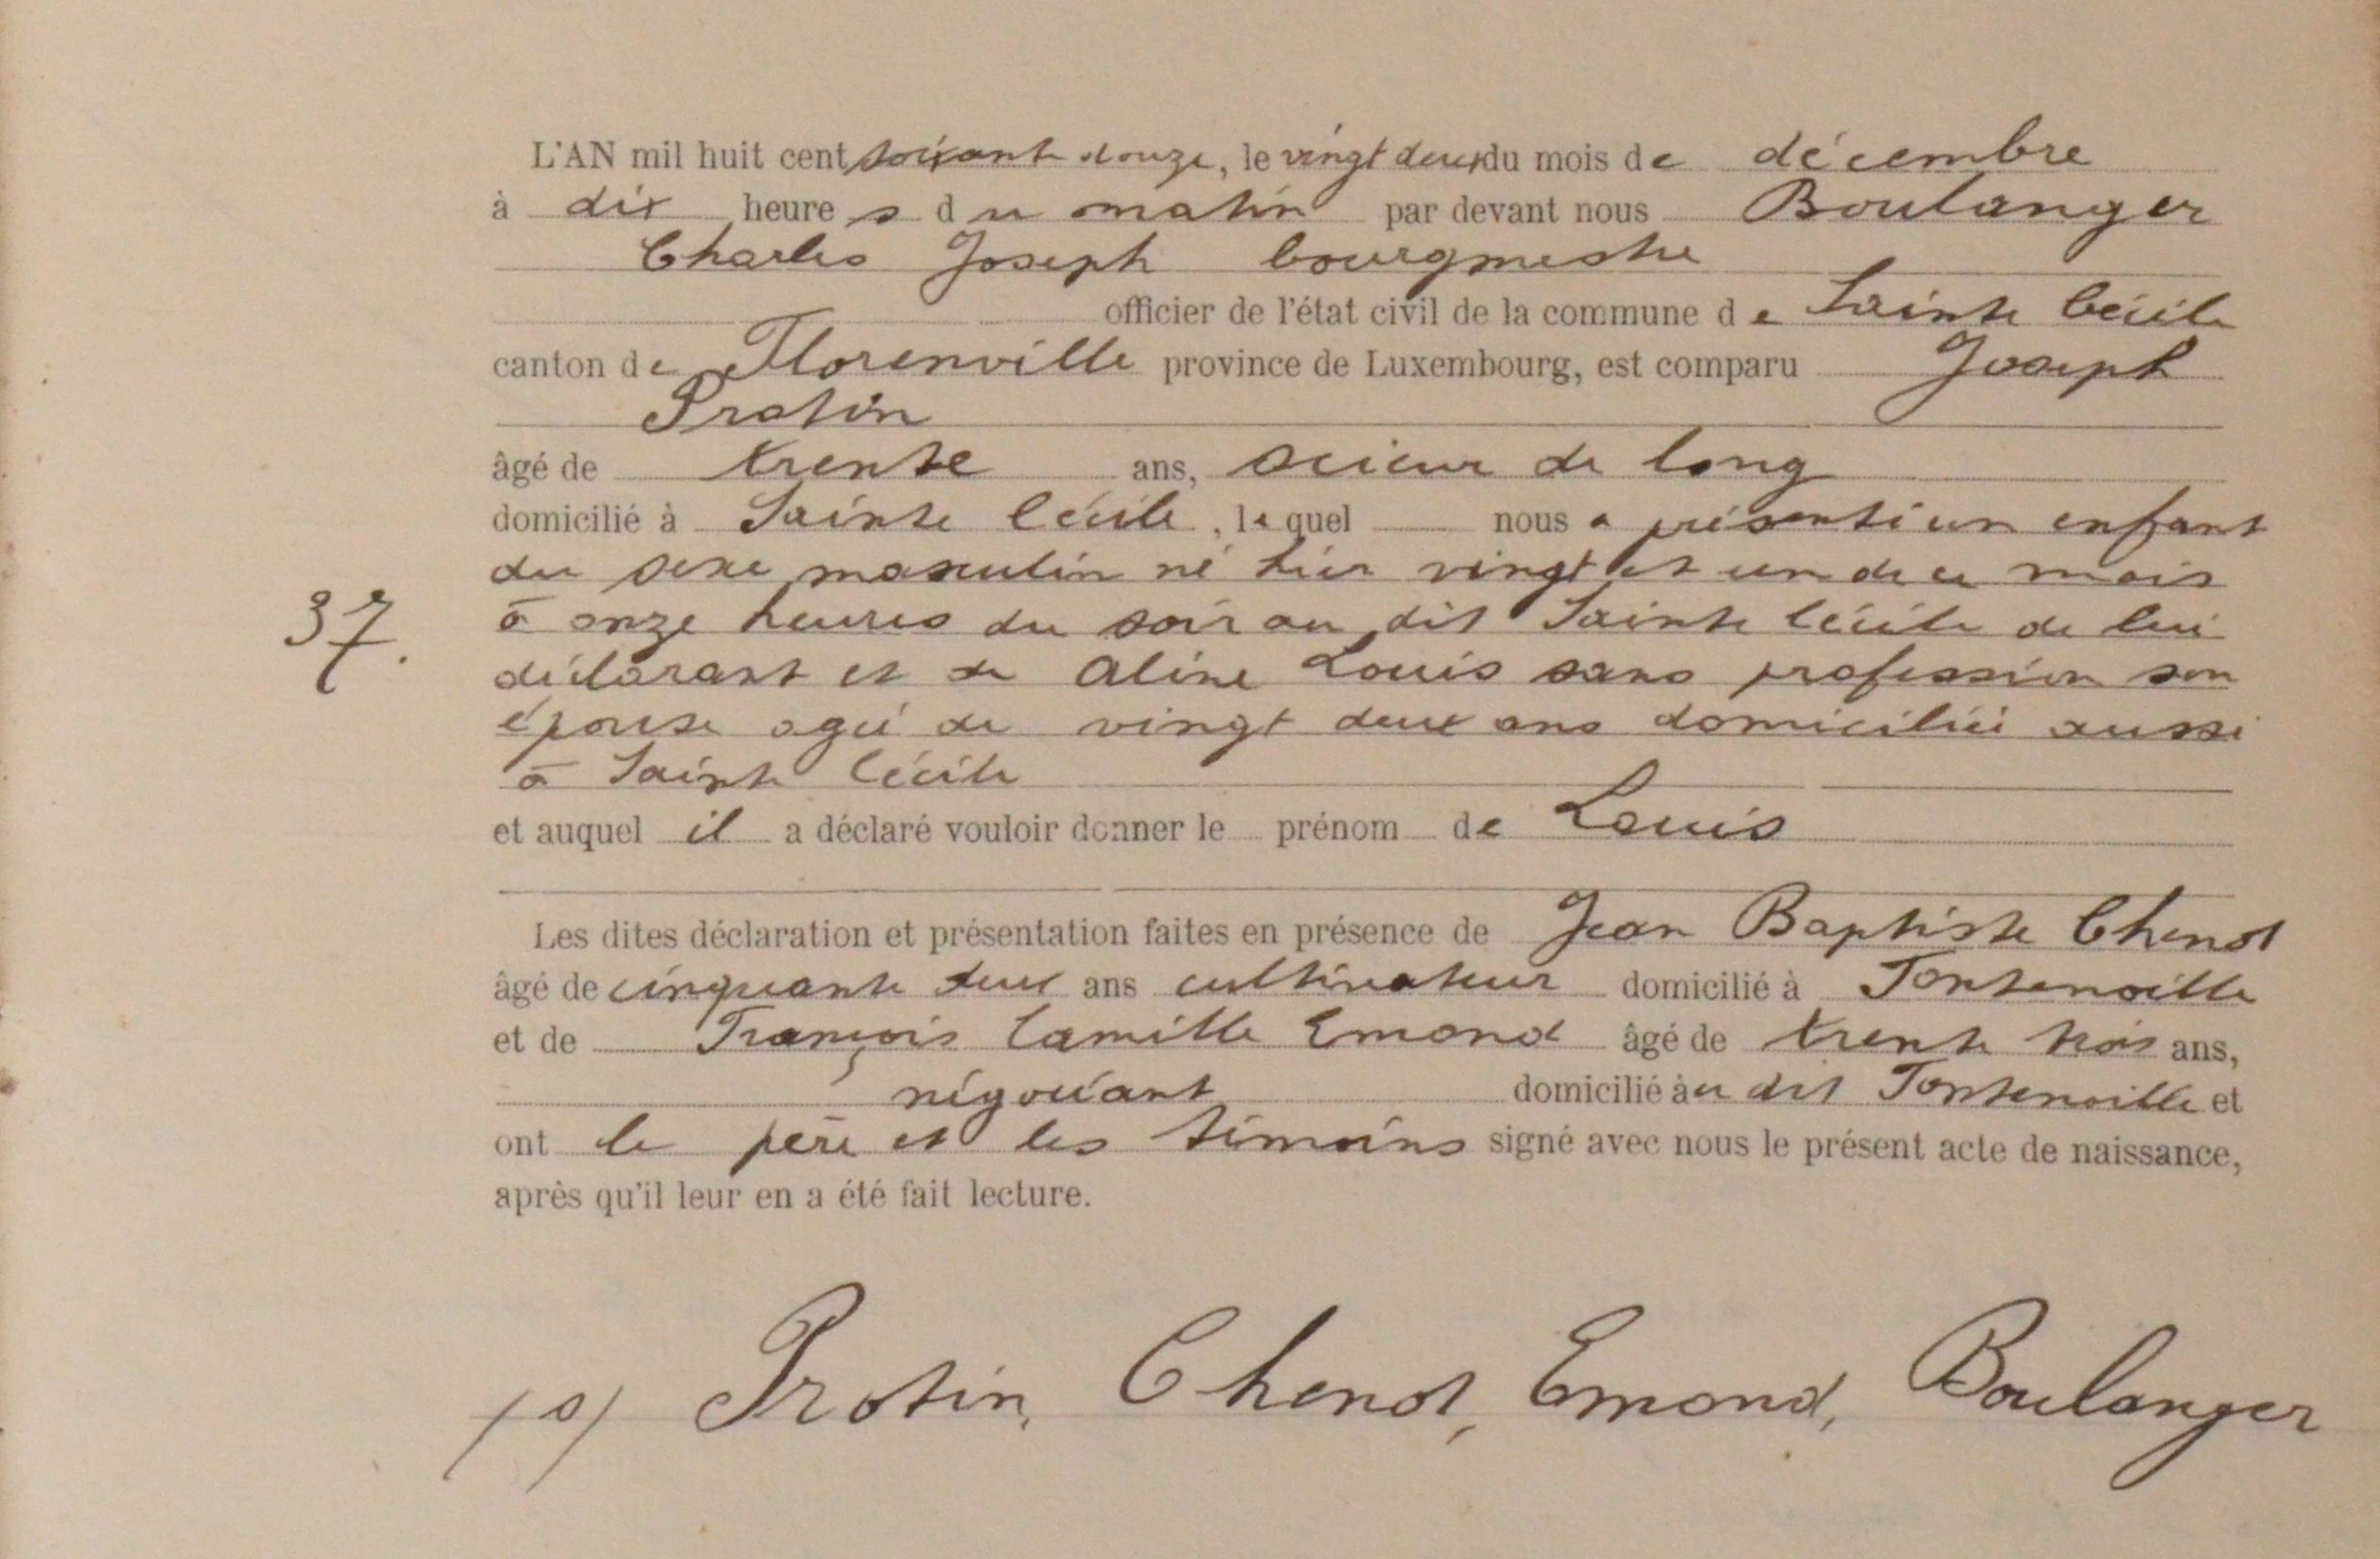 L'AN mil huit cent soixante douze, le vingt deux du mois de décembre
à dix heures du matin par devant nous Boulanger
Charles Joseph bourgmestre
officier de l'état civil de la commune de Sainte Cécile
canton de Florenville province de Luxembourg, est comparu Joseph
Protin
âgé de trente ans, scieur de long
domicilié à Sainte Cécile, lequel nous a présenté un enfant
du sexe masculin né hier vingt et un de ce mois
37. à onze heures du soir au dit Sainte Cécile de lui
déclarant et de Aline Louis sans profession son
épouse agée de vingt deux ans domiciliée aussi
à Sainte Cécile
et auquel il a déclaré vouloir donner le prénom de Louis
Les dites déclaration et présentation faites en présence de Jean Baptiste Chenot
âgé de cinquante deux ans cultivateur domicilié à Fontenoille
et de François Camille Emond âgé de trente trois ans,
négociant domicilié àu dit Fontenoille et
ont le père et les témoins signé avec nous le présent acte de naissance,
après qu'il leur en a été fait lecture.
(s) Protin, Chenot, Emond, Boulanger